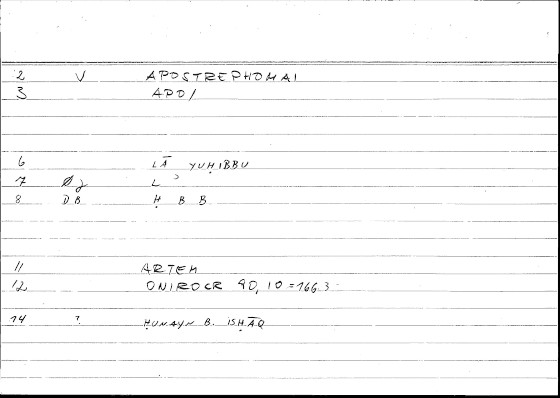 2 V APOSTREPHOMAI
3 APO/
6 LĀ YUḤIBBU
7 Ø L ʾ
8 DB Ḥ B B
11 ARTEM
12 ONIROCR 90,10 = 166.3
14 ? ḤUNAYN B. ISḤĀQ